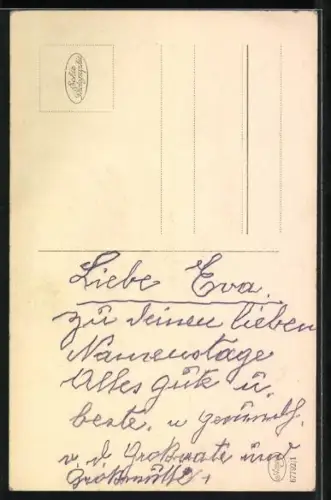 Liebe Eva.
zu deinen lieben
Namenstage
Alles gute u.
beste. u
v. d Großvate und
Großmutter
6779/1